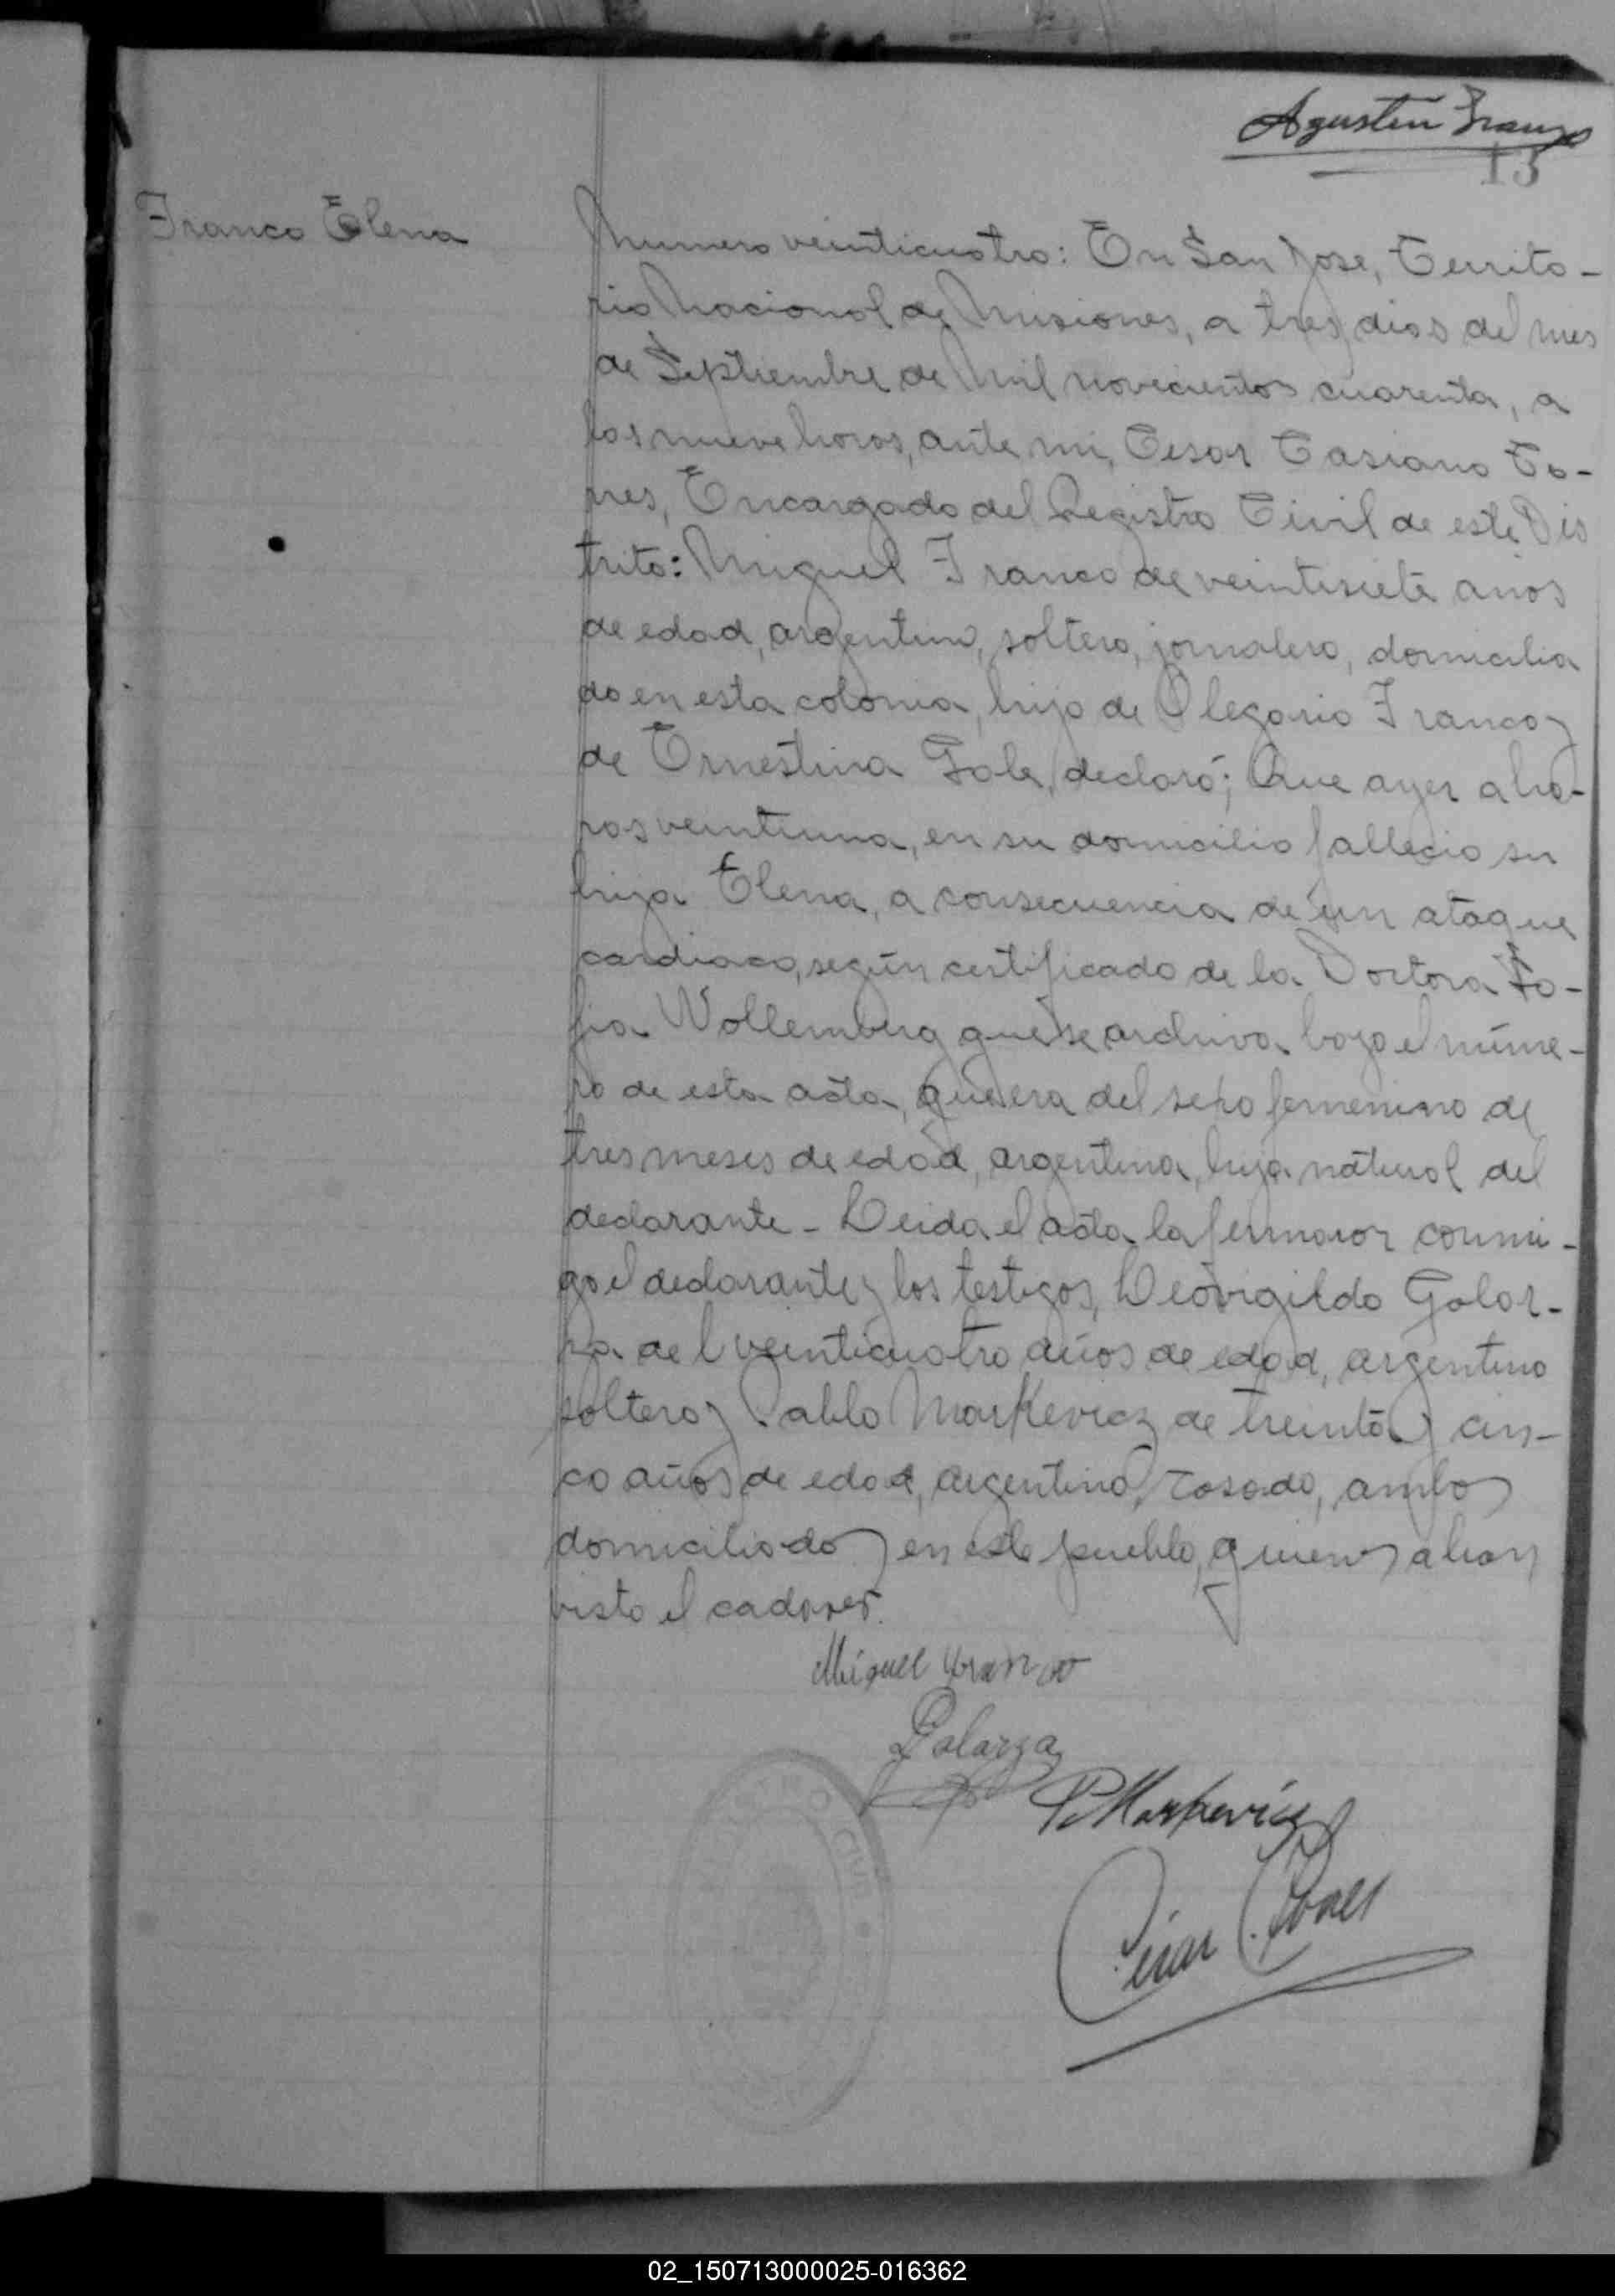 Agustin
13
Franco Elena
Numero veinticuatro: En San Jose, Territo-
rio Nacional de Misiones, a tres dias del mes
de Septiembre de Mil novecientos cuarenta, a
las nueve horas, ante mi, Cesar Casiano To-
rres, Encargado del Registro Civil de este Dis
trito: Miguel Franco de veintisiete años
de edad, argentino, soltero, jornalero, domicilia
do en esta colonia, hijo de Olegario Franco y
de Ernestina declaró; Que ayer a ho-
ras veintiuna, en su domicilio fallecio su
hija Elena, a consecuencia de un ataque
cardiaco, según certificado de la Doctora So-
fia Wollemberg que se archiva bajo el núme-
ro de esta acta, que era del sexo femenino de
tres meses de edad, argentina, hija natural del
declarante - Leida el acta la firmaron conmi-
go el declarante y los testigos, Leovigildo Galar-
za de veinticuatro años de edad, argentino
soltero y Pablo Markevicz de treinta y cin-
co años de edad, argentino, casado, ambos
domiciliados en este pueblo, quienes a han
visto el cadaver.
Miguel Franco
Galarza
P. Markevicz
Cesar C.
REGISTRO CIVIL
02_150713000025-016362